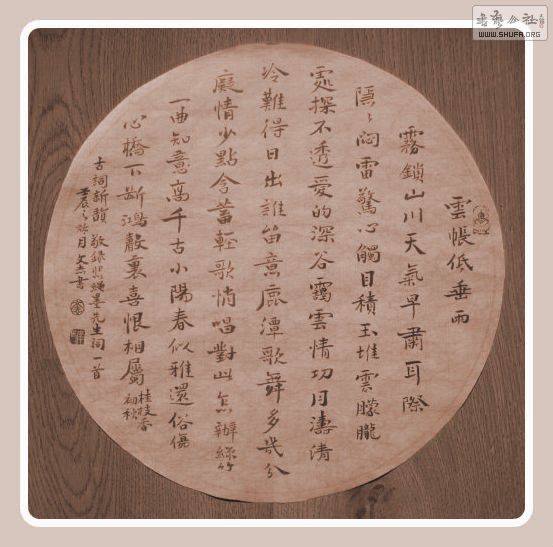 雲帳低垂雨
霧鎖山川天氣早肅耳際
隱々悶雷驚心觸目積玉堆雲朦朧
處探不透愛的深谷靄雲情切月濤清
冷難得日出誰笛意鹿潭歌舞多幾分
癡情少點含蓄輕歌悄唱對此怎辦絲竹
一曲知意高千古小陽春似雅還俗傷
心橋下斷鴻聲裏喜恨相屬
桂枝香
初秋
古詞新韻 敬錄 繩墨先生詞一首
壬辰之 月文志書
书艺公社
WWW.SHUFA.ORG